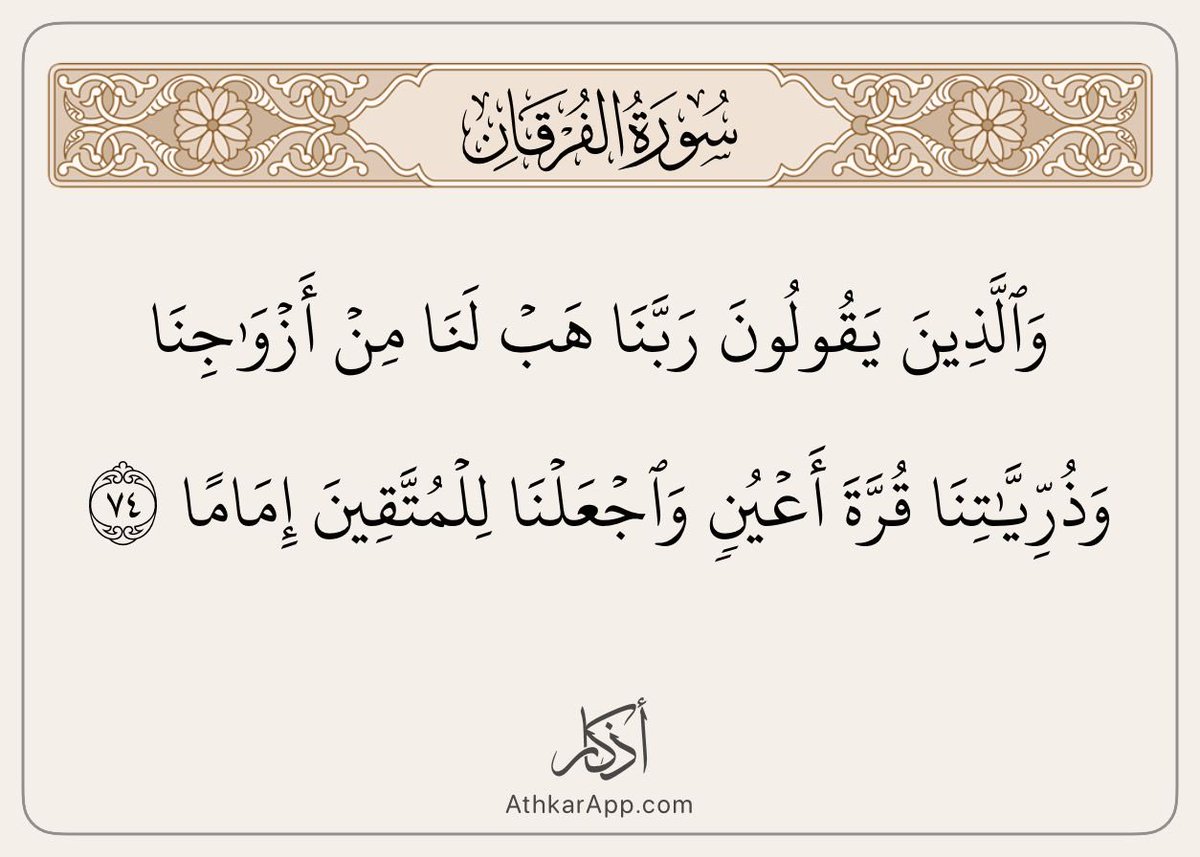 سُورَةُ الفُرْقَانِ
وَٱلَّذِينَ يَقُولُونَ رَبَّنَا هَبۡ لَنَا مِنۡ أَزۡوَٰجِنَا
وَذُرِّيَّٰتِنَا قُرَّةَ أَعۡيُنٖ وَٱجۡعَلۡنَا لِلۡمُتَّقِينَ إِمَامًا ٧٤
أذكار
AthkarApp.com